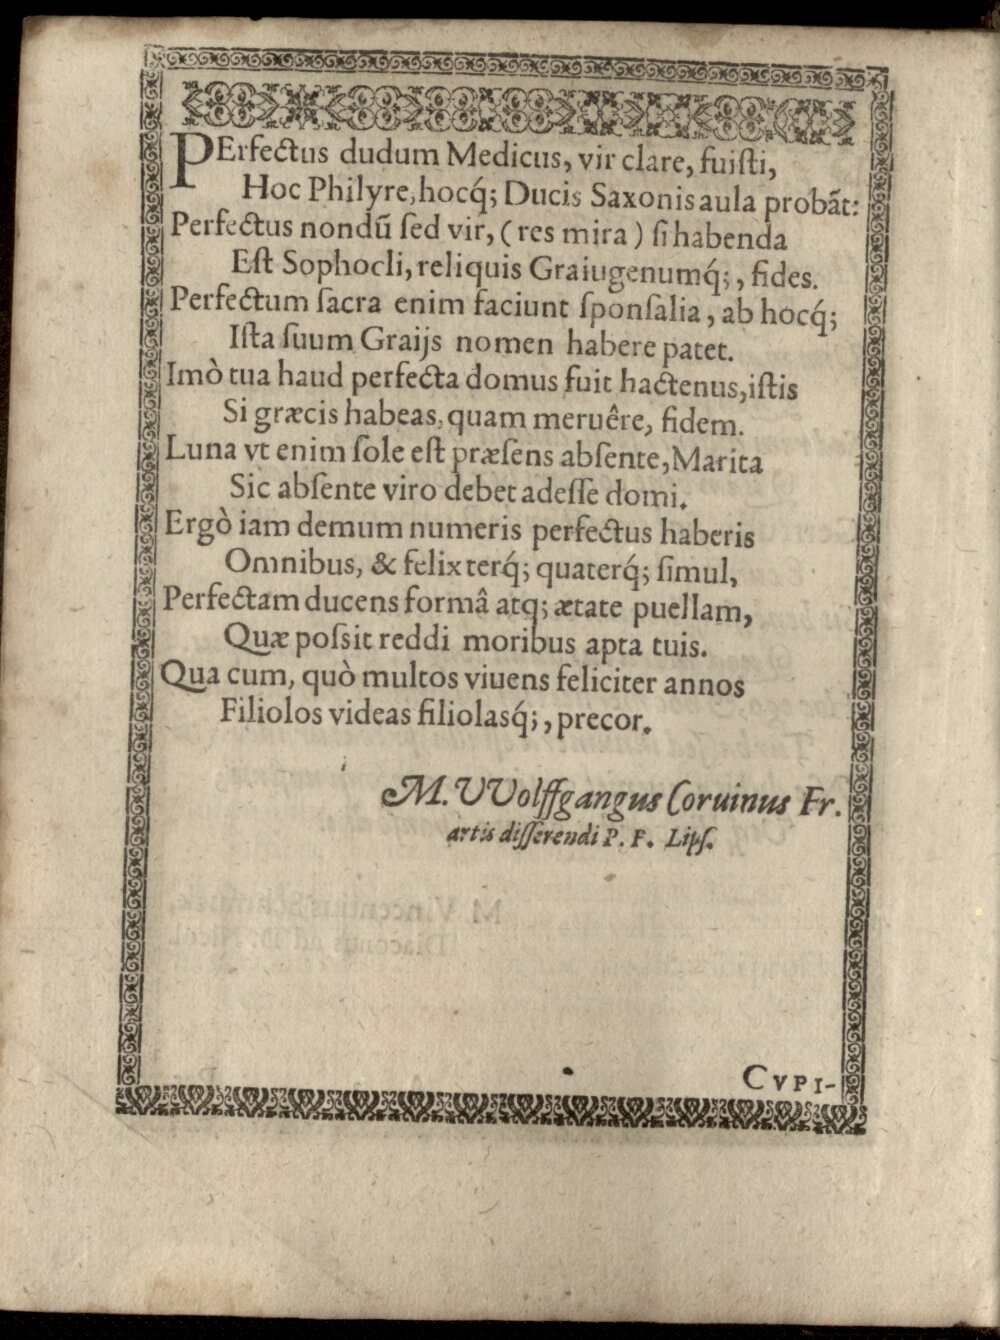 PErfectus dudum Medicus, vir clare, fuiſti,
Hoc Philyre, hocq́; Ducis Saxonis aula probãt:
Perfectus nondũ ſed vir, ( res mira ) ſi habenda
Eſt Sophocli, reliquis Graiugenumq́; , fides.
Perfectum ſacra enim faciunt ſponſalia, ab hocq́;
Iſta ſuum Graijs nomen habere patet.
Imò tua haud perfecta domus fuit hactenus, iſtis
Si græcis habeas, quam meruêre, fidem.
Luna vt enim ſole eſt præſens abſente, Marita
Sic abſente viro debet adeſſe domi.
Ergò iam demum numeris perfectus haberis
Omnibus, & felix terq́; quaterq́; ſimul,
Perfectam ducens formâ atq; ætate puellam,
Quæ poſsit reddi moribus apta tuis.
Qua cum, quò multos viuens feliciter annos
Filiolos videas filiolasq́; , precor.
M. VVolffgangus Coruinus Fr.
artis diſſerendi P. F. Lipſ.
CVPI-